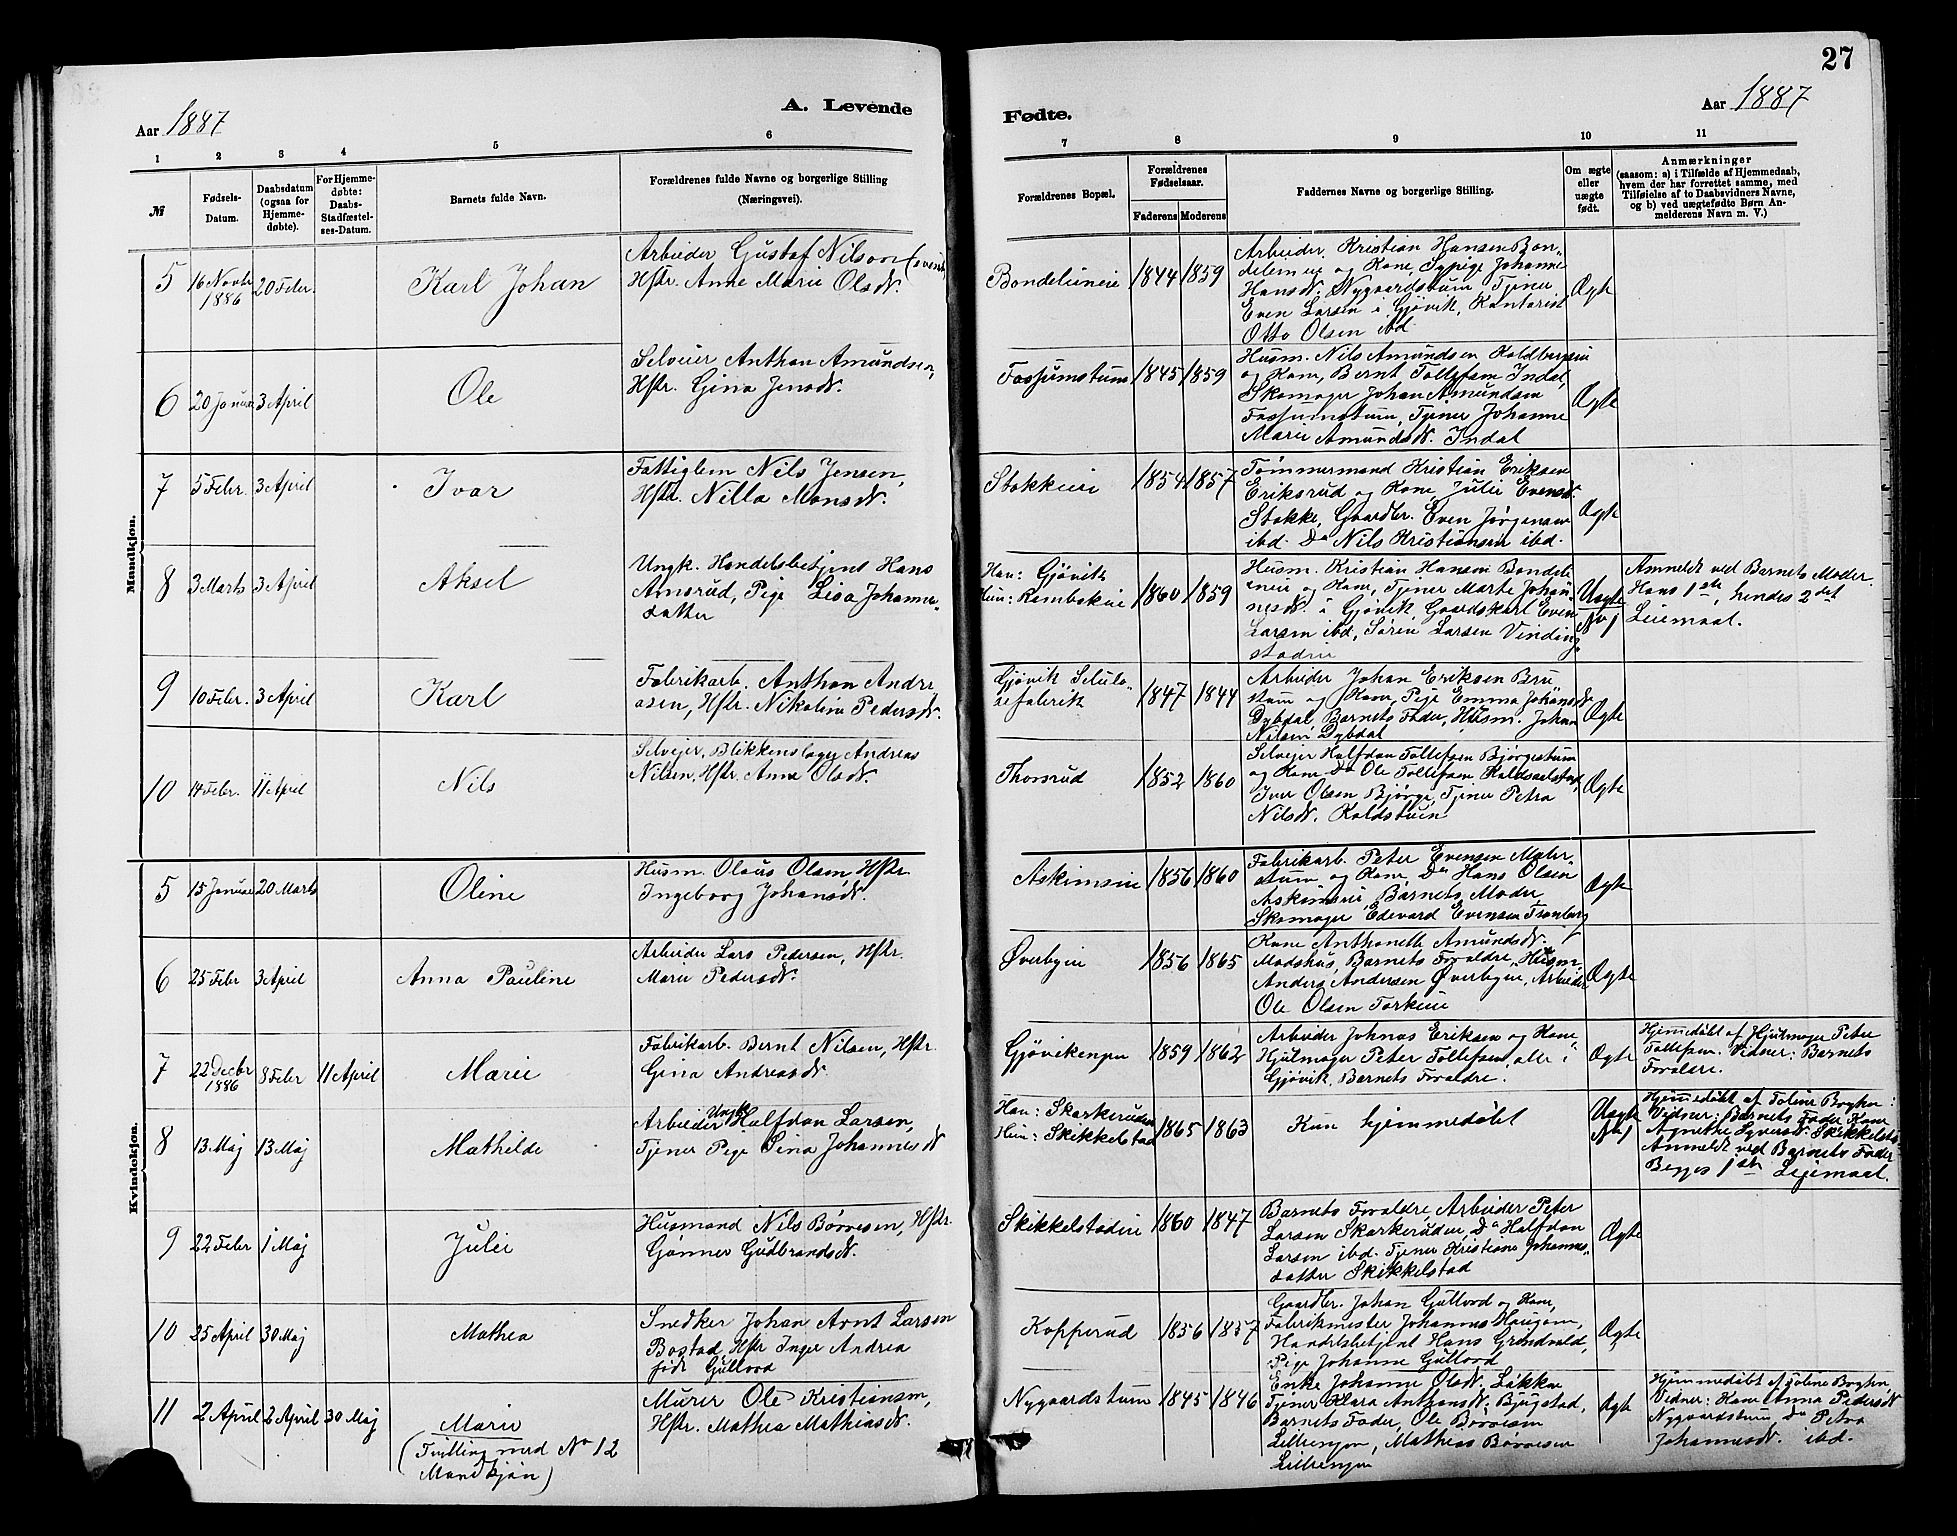 27
Aar 1887
A. Levende
Fødte.
Aar 1887
1 2 3 4 5 6
7 8 9 10 11
№
Fødsels-
Datum.
Daabsdatum
(ogsaa for
Hjemme-
døbte).
For Hjemme-
døbte:
Daabs-
Stadfæstel-
ses-Datum.
Barnets fulde Navn.
Forældrenes fulde Navne og borgerlige Stilling
(Næringsvei).
Forældrenes Bopæl.
Forældrenes
Fødselsaar.
Faderens Moderens
Faddernes Navne og borgerlige Stilling.
Om ægte
eller
uægte
født.
Anmærkninger
(saasom: a) i Tilfælde af Hjemmedaab,
hvem der har forrettet samme, med
Tilføielse af to Daabsvidners Navne,
og b) ved uægtefødte Børn An-
melderens Navn m. V.)
Mandkjøn.
5
16 Novbr
1886
20 Febr.
Karl Johan
Arbeider Gustaf Nilson (svensk)
Hstr. Anne Marie Olsdt.
Bondelieneie
1844 1859
Arbeider Kristian Hansen Bon-
delieneie og Kone, Sypige Johanne
Hansdt. Nygaardstuen, Tjener
Even Larsen i Gjøvik, Kontorist
Otto Olsen ibd.
Ægte
6
20 Januar
3 April
Ole
Selveier Anthon Amundsen,
Hstr. Gina Jensdt.
Fossumstuen
1845 1859
Husm. Nils Amundsen Koldbergseie
og Kone, Bernt Tollefsen Indal,
Skomager Johan Amundsen
Fossumstuen, Tjener Johanne
Marie Amundsdt. Indal
Ægte
7
5 Febr.
3 April
Ivar
Fattiglem Nils Jensen,
Hstr. Nilla Monsdt.
Stokkeeie
1854 1857
Tømmermand Kristian Eriksen
Eriksrud og Kone, Julie Evensdt.
Stokke, Gaardbr. Even Jørgensen
ibd. Do Nils Kristiansen ibd.
Ægte
8
3 Marts
3 April
Aksel
Ungk. Handelsbetjent Hans
Amsrud, Pige Lisa Johannes-
datter
Han: Gjøvik
Hun: Rambekeie
1860 1859
Husm. Kristian Hansen Bondeli-
eneie og Kone, Tjener Marte Johan-
nesdt. i Gjøvik Gaardskarl Even
Larsen ibd, Søren Larsen Vinding-
stadeie
Uægte
No 1
Anmeldt ved Barnets Moder.
Hans 1ste, hendes 2det
Leiemaal.
9
10 Febr.
3 April
Karl
Fabrikarb. Anthon Andre
asen, Hstr. Nikoline Pedersdt.
Gjøvik Selulo-
sefabrik
1847 1844
Arbeider Johan Eriksen Bru
stuen og Kone, Pige Emma Johansdt
Dybdal, Barnets Fader, Husm. Johan
Nilsen Dybdal
Ægte
10
14 Febr.
11 April
Nils
Selvejer, Blikkenslager Andreas
Nilsen, Hstr. Anna Olsdt.
Thorsrud
1852 1860
Selvejer Halfdan Tollefsen Bjørgestuen
og Kone Do Ole Tollefsen Koldsvelstad,
Iver Olsen Bjørge, Tjener Petra
Nilsdt. Koldstuen
Ægte
Kvindekjøn.
5
15 Januar
20 Marts
Oline
Husm. Olaus Olsen, Hstr.
Ingeborg Johansdt.
Askimseie
1856 1860
Fabrikarb. Peter Evensen Maler-
stuen og Kone, Do Hans Olsen
Askimseie, Barnets Moder,
Skomager Edevard Evensen Tranberg
Ægte
6
25 Febr
3 April
Anna Pauline
Arbeider Lars Pedersen, Hstr.
Marie Pedersdt.
Øverbyeie
1856 1865
Kone Anthonette Amundsdt.
Madshus, Barnets Foraldre, Husm.
Anders Andersen Øverbyeie, Arbeider
Ole Olsen Torkeeie
Ægte
7
22 Decbr
1886
8 Febr
11 April
Marie
Fabrikarb. Bernt Nilsen, Hstr.
Gina Andreasdt.
Gjøvikengen
1859 1862
Arbeider Johnas Eriksen og Kone,
Hjulmager Peter Tollefsen, alle i
Gjøvik, Barnets Foraldre.
Ægte
Hjemmedøbt af Hjulmager Peter
Tollefsen. Vidner: Barnets
Foraldre.
8
13 Maj
13 Maj
Mathilde
Arbeider Ungk. Halfdan Larsen,
Tjener Pige Sina Johannesdt
Han: Skarkerudeie
Hun: Skikkelstad
1865 1863
Kun hjemmedøbt
Uægte
No 1
Hjemmedøbt af Toline Boghn:
Vidner: Barnets Fader, Kone
Agnethe Syversdt. Skikkelsta
Anmeldt ved Barnets Fader
Begges 1ste Lejemaal.
9
22 Febr
1 Maj
Julie
Husmand Nils Børresen, Hstr.
Gønner Gudbrandsdt.
Skikkelstadeie
1860 1847
Barnets Foraldre, Arbeider Peter
Larsen Skarkerudeie, Do Halfdan
Larsen ibd. Tjener Kristiane Johannes-
datter Skikkelstad
Ægte
10
25 April
30 Maj
Mathea
Snedker Johan Arnt Larsen
Bostad, Hstr Inger Andrea
født Gullord
Kopperud
1856 1857
Gaardbr. Johan Gullord og Kone,
Fabrikmester Johannes Haugom,
Handelsbetjent Hans Grindvold,
Pige Johanne Gullord
Ægte
11
2 April
2 April
30 Maj
Marie
(Tvilling med No 12
Mandkjøn)
Murer Ole Kristiansen,
Hstr. Mathea Mathiasdt.
Nygaardstuen
1845 1846
Enke Johanne Olsdt. Løkken
Tjener Klara Anthonsdt. Bjugstad,
Barnets Fader, Ole Børresen
Lilleengen, Mathias Børresen
Lilleengen
Ægte
Hjemmedøbt af Toline Boghn
Vidner: Kone Anna Pedersdt
Nygaardstuen, Do Petra
Johannesdt. ibd.